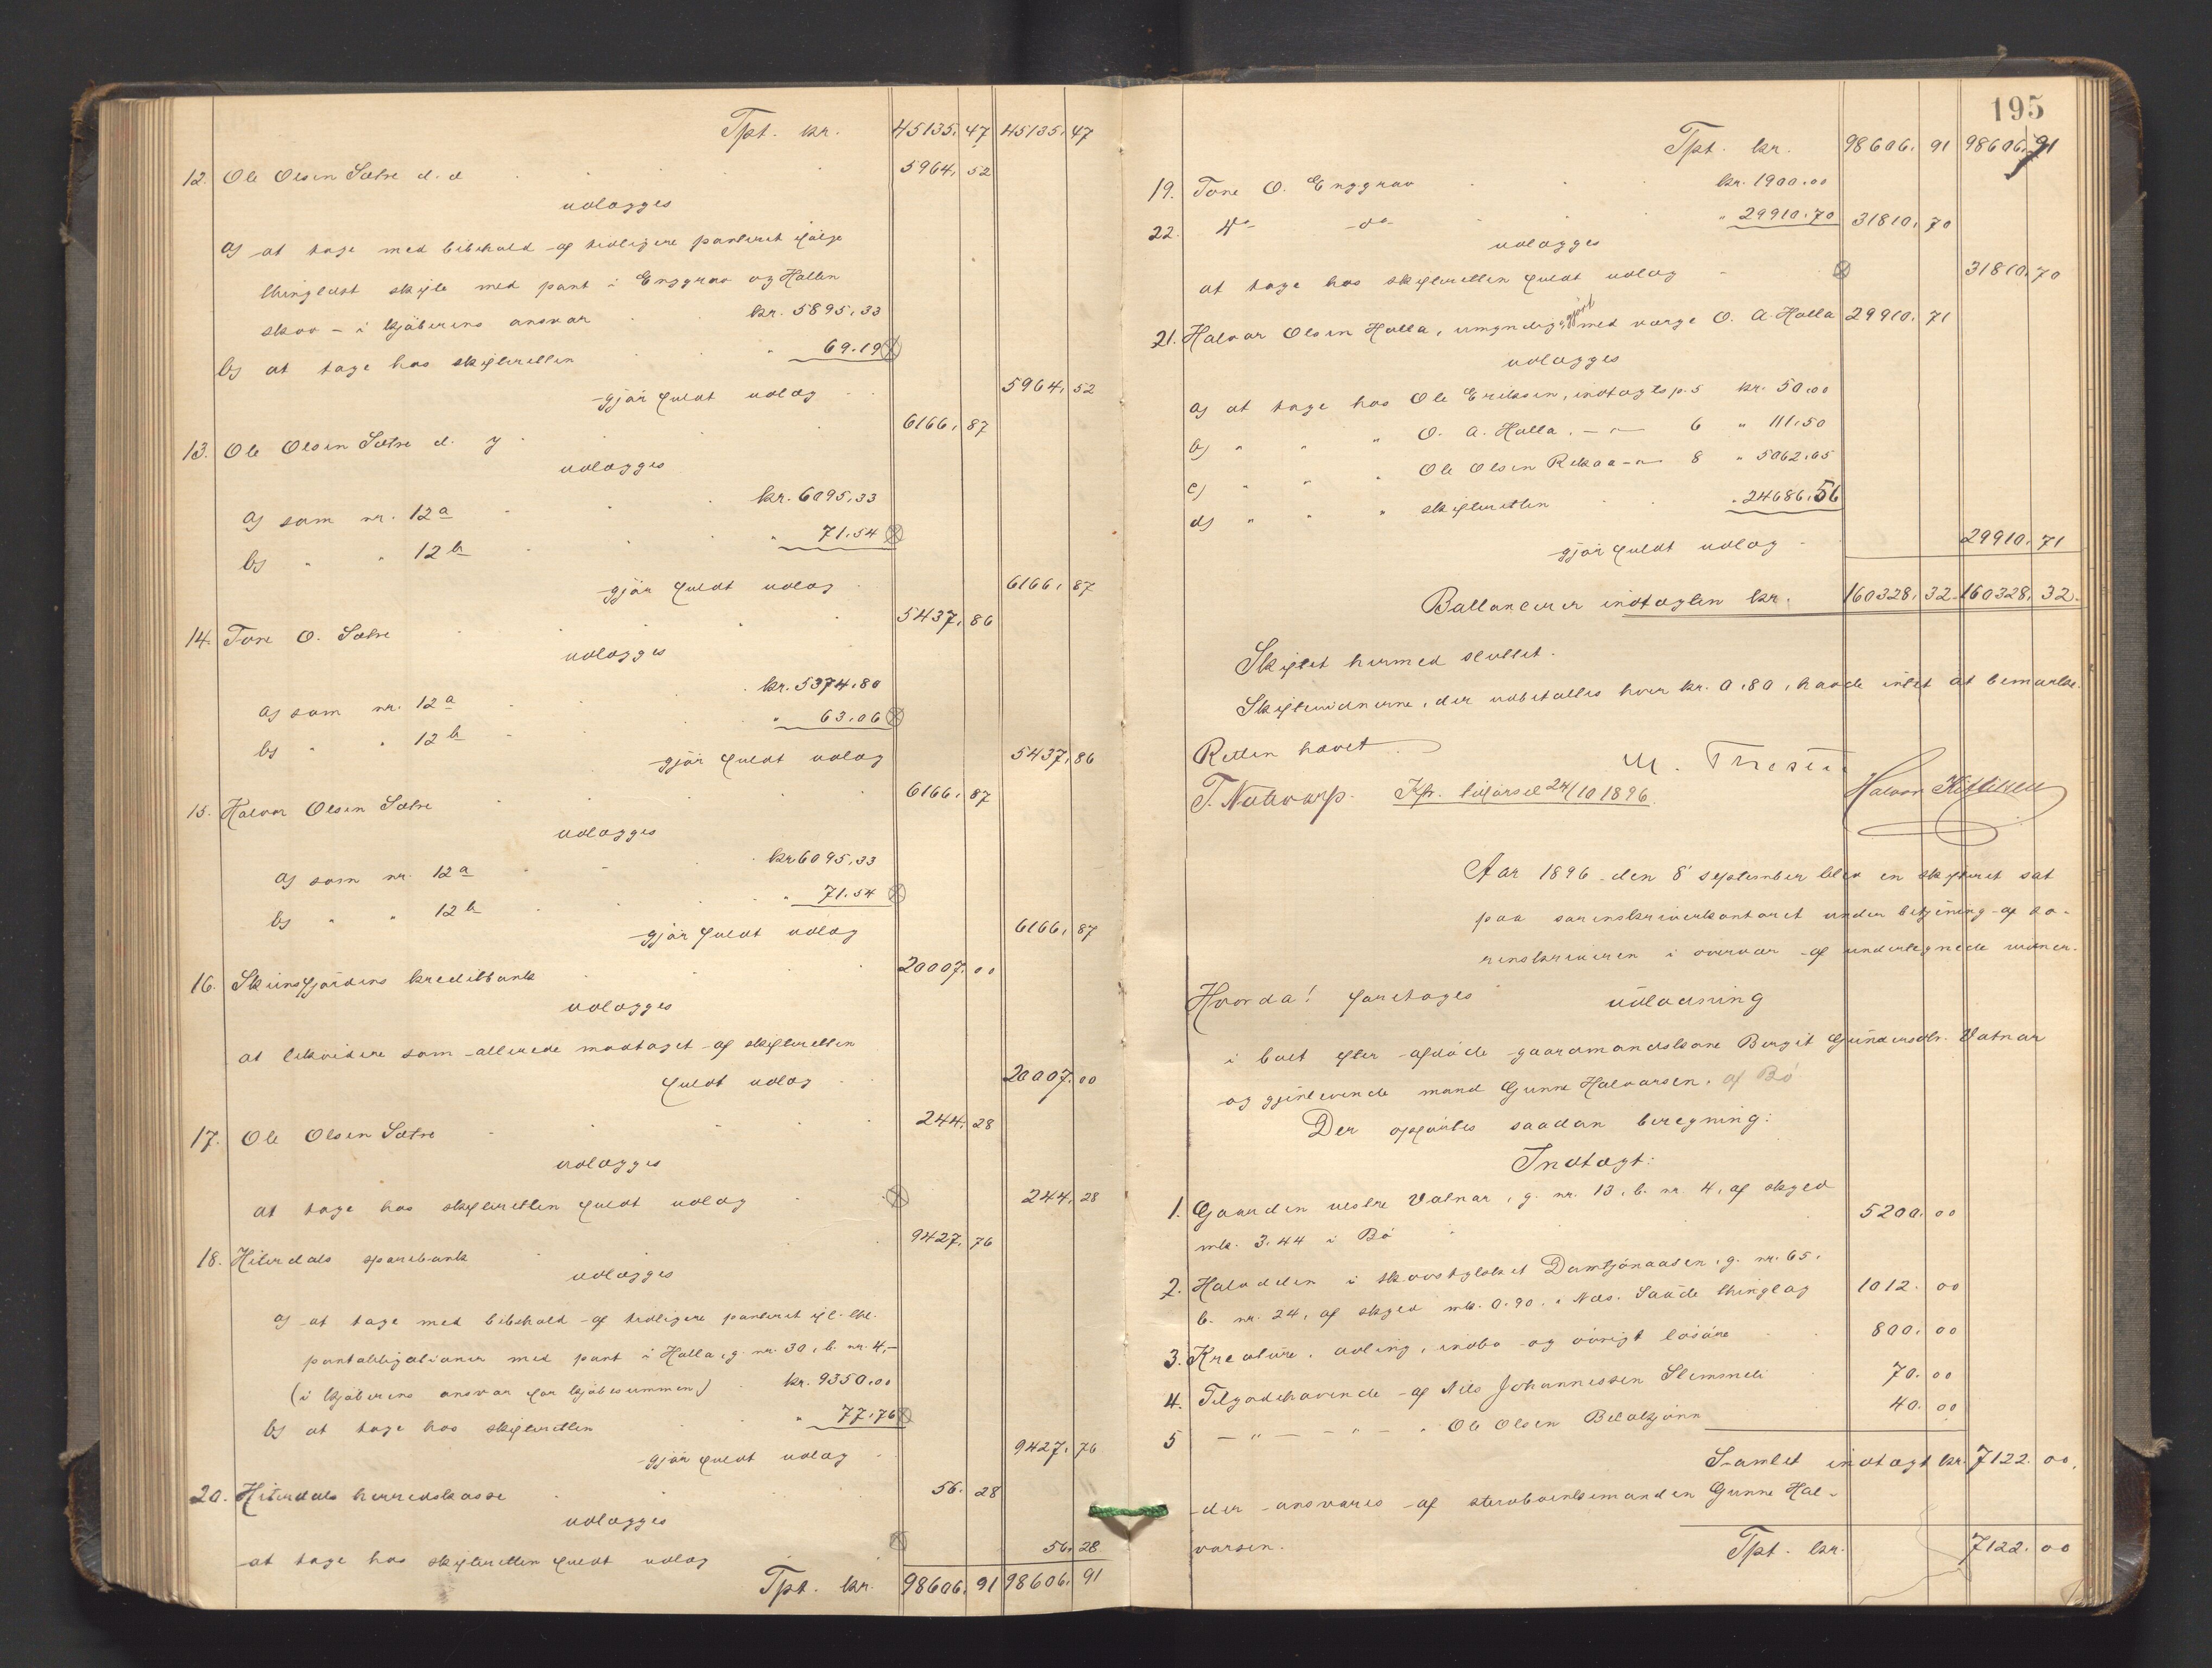 Tpt. kr. 45135,47 45135,47
12. Ole Olsen Sætre d. æ 5964,52
udlægges
a) at tage med bibehold af tidligere panteret ifølge
thinglæst skjøte med pant i Enggrav og Hallen
skov - i kjøberens ansvar kr. 5895,33
b) at tage hos skifteretten " 69.19
gjør fuldt udlæg 5964,52
13. Ole Olsen Sætre d. y 6166,87
udlægges
a) som nr. 12 a kr. 6095,33
b) " " 12 b " 71.54
gjør fuldt udlæg 6166,87
14. Tone O. Sætre 5437,86
udlægges
a) som nr. 12 a kr. 5374,80
b) " " 12 b " 63.06
gjør fuldt udlæg 5437,86
15. Halvor Olsen Sætre 6166,87
udlægges
a) som nr. 12 a kr 6095,33
b) " " 12 b " 71.54
gjør fuldt udlæg 6166,87
16. Skiensfjordens kreditbank 20007.00
udlægges
at likvidere som allerede modtaget af skifteretten
fuldt udlæg 20007.00
17. Ole Olsen Sætre 244,28
udlægges
at tage hos skifteretten fuldt udlæg 244,28
18. Hiterdals sparebank 9427,76
udlægges
a) at tage med bibehold af tidligere panteret ifl. thl.
pantobligationer med pant i Halla, g. nr. 30, b. nr. 4, -
(i kjøberens ansvar for kjøbesummen) kr. 9350.00
b) at tage hos skifteretten " 77,76
gjør fuldt udlæg 9427,76
20. Hiterdals herredskasse 56.28
udlægges
at tage hos skifteretten fuldt udlæg 56,28
Tpt. kr. 98606.91 98606.91
195
Tpt. kr. 98606.91 98606.91
19. Tone O. Enggrav kr. 1900.00
22. do do " 29910.70 31810.70
udlægges
at tage hos skifteretten fuldt udlæg 31810.70
21. Halvor Olsen Halla, umyndiggjort med værge O. A. Halla 29910.71
udlægges
a) at tage hos Ole Eriksen, indtægts p. 5 kr. 50.00
b) " " " O. A. Halla, - " - 6 " 111.50
c) " " " Ole Olsen Rekaa - " - 8 " 5062.65
d) " " " skifteretten " 24686.56
gjør fuldt udlæg 29910.71
Ballancerer indtægten kr. 160328,32 160328,32
Skiftet hermed sluttet.
Skiftevidnerne, der udbetaltes hver kr. 0.80, havde intet at bemærke.
Retten hævet
T. Natvarp. Kfr. tilførsel 24/10 1896.
Aar 1896 den 8' september blev en skifteret sat
paa sorenskriverkontoret under betjening af so-
renskriveren i overvær af undertegnede vidner.
Hvorda! foretages udlodning
i boet efter afdøde gaardmandskone Bergit Gundersdtr. Vatnar
og gjenlevende mand Gunne Halvorsen, af Bø
Der opførtes saadan beregning:
Indtægt:
1. Gaarden vestre Vatnar, g. nr. 13, b. nr. 4, af skyld
mk. 3.44 i Bø 5200.00
2. Halvdelen i skovstykket Damtjønaasen, g. nr. 65,
b. nr. 24, af skyld mk. 0.90. i Næs. Saude thinglag 1012.00
3. Kreature, avling, indbo og øvrigt løsøre 800.00
4. Tilgodehavende af Nils Johannessen Slemmeli 70.00
5 - " - - " - " Ole Olsen 40.00
Samlet indtægt kr. 7122.00,
der ansvares af stervboenkemanden Gunne Hal-
vorsen.
Tpt. kr. 7122.00